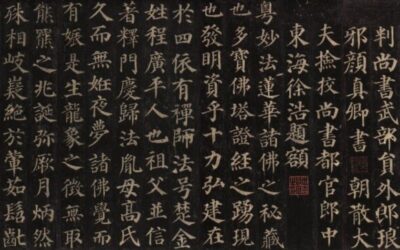 判尚書武部員外郎琅
邪顏真卿書 朝散大
夫撿校尚書都官郎中
東海徐浩題額
粵妙法蓮華諸佛之秘藏
也多寶佛塔證經之踴現
也發明資乎十力弘建在
於四依有禪師法号楚金
姓程廣平人也祖父並信
著釋門慶歸法胤母高氏
久而無妊夜夢諸佛覺而
有娠是生龍象之徵無取
熊羆之兆誕弥厥月炳然
殊相岐嶷絕於葷茹髫齔